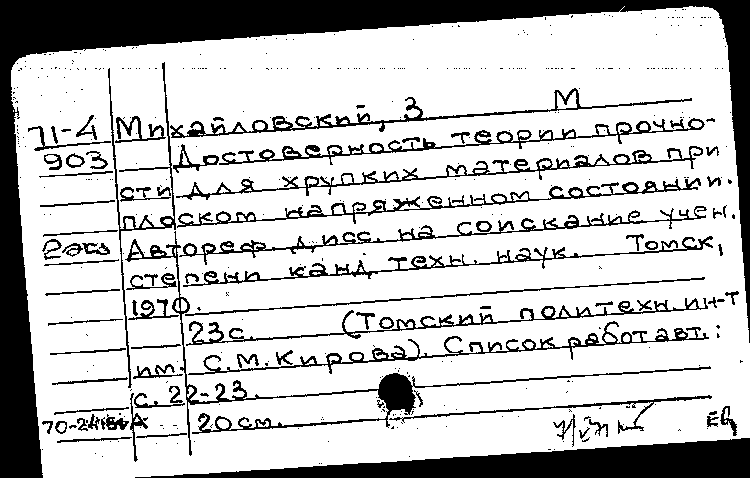 71-4 Михайловский, З М
903 Достоверность теории прочно-
сти для хрупких материалов при
плоском напряженном состоянии.
2 экз Автореф. дисс. на соискание учен.
степени канд. техн. наук. Томск,
1970.
23 с. (Томский политехн. ин-т
им. С.М. Кирова). Список работ авт.:
с. 22-23.
20 см.